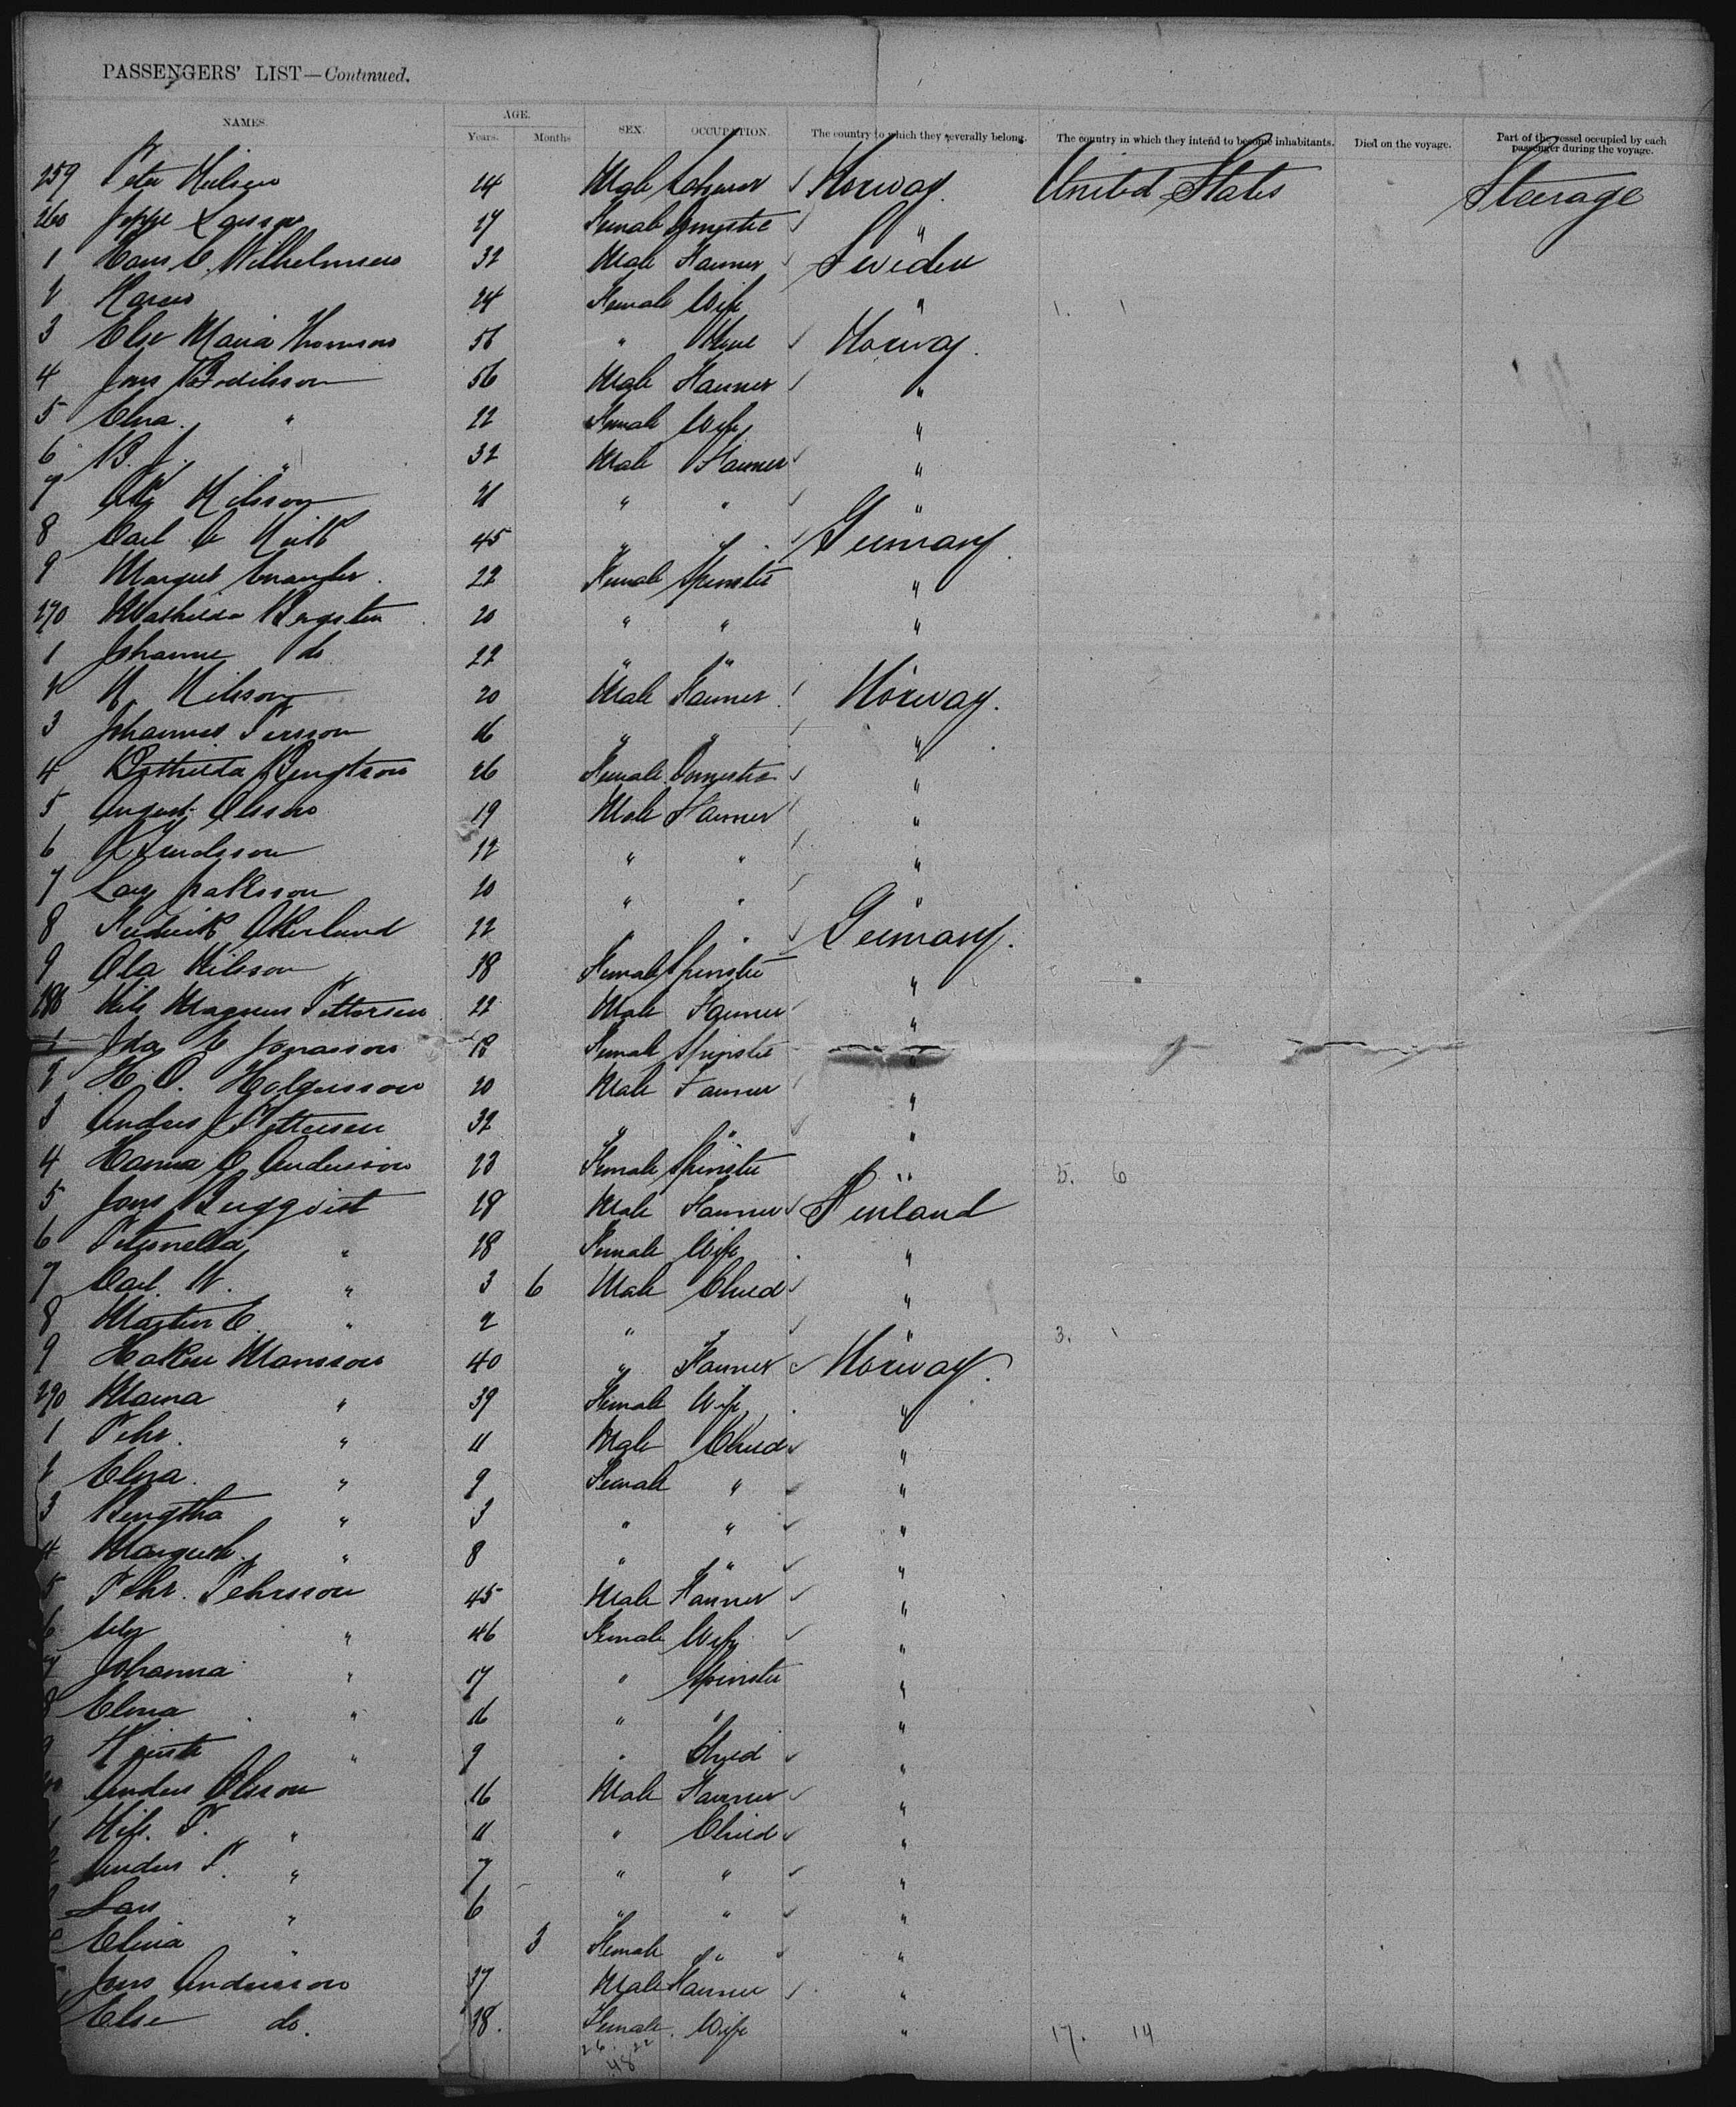 PASSENGERS' LIST—Continued.
NAMES. AGE. Years. Months SEX. OCCUPATION. The country to which they severally belong. The country in which they intend to become inhabitants. Died on the voyage. Part of the vessel occupied by each passenger during the voyage.
259 Peter Nielsen 24 Male Labourer Norway. United States Steerage
260 Jeppe Larsson 27 Female Domestic "
1 Hans C. Wilhelmsen 32 Male Farmer Sweden
2 Karen 24 Female Wife "
3 Else Maria Thomsen 56 " Norway.
4 Jons Bodilsson 56 Male Farmer "
5 Elna " 22 Female Wife "
6 B. J. " 32 Male Farmer "
7 Nilsson 21 " " "
8 Carl 45 " " Germany.
9 Margret 22 Female Spinster "
270 Mathilda Bergsten 20 " " "
1 Johanne do 22 " "
2 N. Nilsson 20 Male Farmer Norway.
3 Johannes Persson 16 " " "
4 Bothilda Bengtson 26 Female Domestic "
5 August Olsson 19 Male Farmer "
6 12 " " "
7 Lars Jaksson 20 " " "
8 Fredrick Akerlund 22 " " Germany.
9 Ola Nilsson 18 Female Spinster "
280 Nils Magnus Petterson 22 Male Farmer "
1 Ida C Jonasson 18 Female Spinster "
2 H. O. Holgersson 20 Male Farmer "
3 Anders J Pettersen 32 " " "
4 Hanna C Andersson 23 Female Spinster "
5 Jons Bergqvist 28 Male Farmer Finland
6 Petronella " 28 Female Wife "
7 Carl W. " 3 6 Male Child "
8 Martin E. " 2 " " "
9 Hakon Mansson 40 " Farmer Norway.
290 Mama " 39 Female Wife "
1 Pehr. " 11 Male Child "
2 Elna. " 9 Female " "
3 Bengtha " 3 " " "
4 Margreth. " 8 " " "
5 Pehr. Pehrsson 45 Male Farmer "
6 " 46 Female Wife "
7 Johanna " 17 " Spinster "
8 Elna " 16 " " "
9 " 9 " Child "
Anders Olsson 16 Male Farmer "
1 Nils. P. " 11 " Child "
Anders P. " 7 " " "
Lars " 6 " " "
Elina " 3 Female " "
Jons Andersson 37 Male Farmer "
Else do. 38. Female. Wife "
26 22
48
17. 14